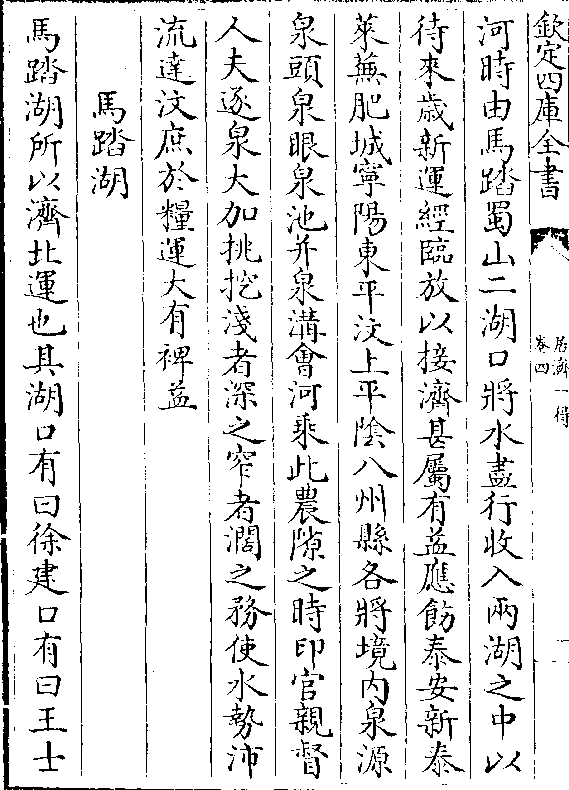 欽定四庫全書
居濟一得
卷四
一
河時由馬踏蜀山二湖口將水盡行收入兩湖之中以
待來歲新運經臨放以接濟甚屬有益應飭泰安新泰
萊蕪肥城寧陽東平汶上平陰八州縣各將境內泉源
泉頭泉眼泉池并泉溝會河乘此農隙之時印官親督
人夫逐泉大加挑挖淺者深之窄者濶之務使水勢沛
流達汶庶於糧運大有裨益
馬踏湖
馬踏湖所以濟北運也其湖口有曰徐建口有曰王士